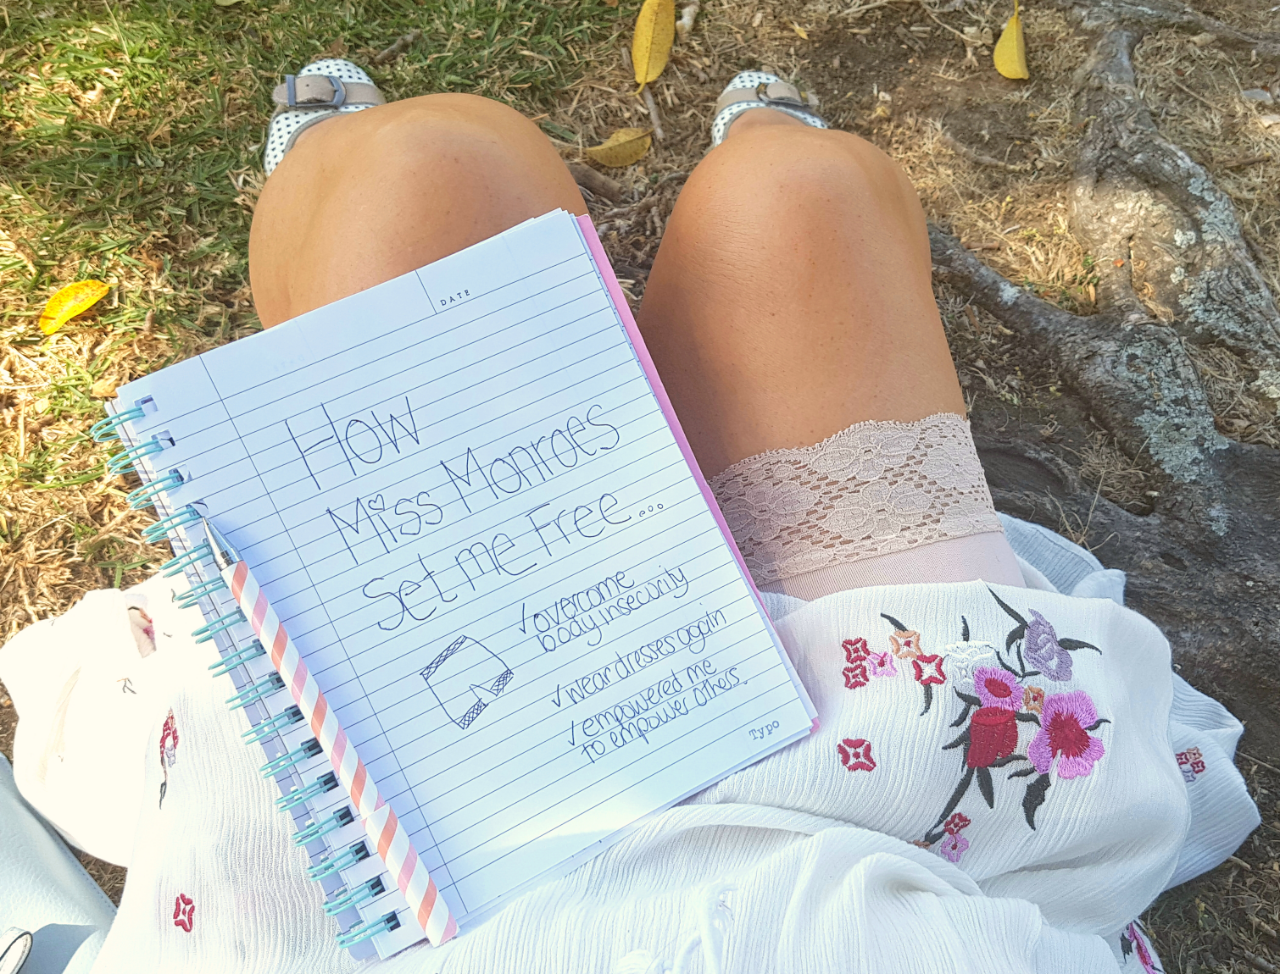 DATE
How
Miss Monroes
set me Free...
✓overcome
body insecurity
✓wear dresses again
✓empowered me
to empower others.
Typo